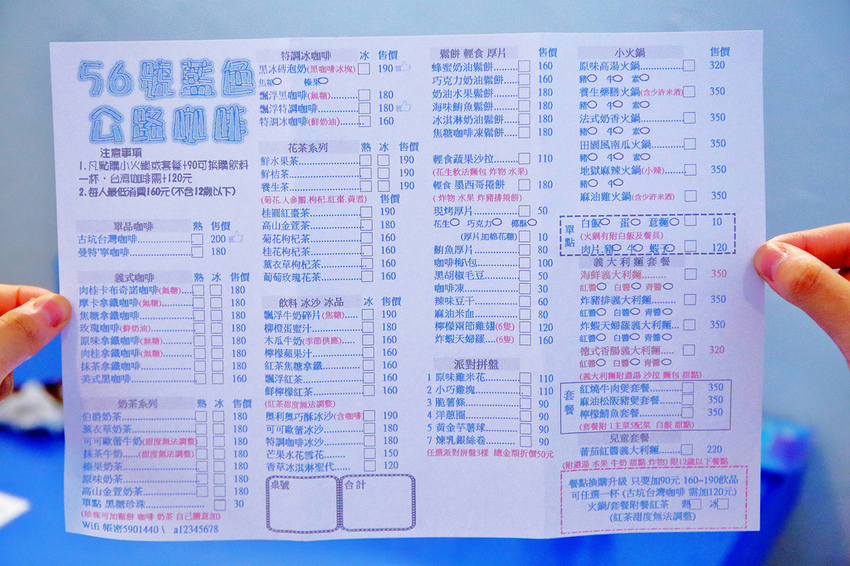 56號藍色
公路咖啡
注意事項
1.凡點購小火鍋或套餐+90可換購飲料
一杯，台灣咖啡需+120元
2.每人最低消費160元(不含12歲以下)
單品咖啡 熱 售價
古坑台灣咖啡 200
曼特寧咖啡 180
義式咖啡 熱 冰 售價
肉桂卡布奇諾咖啡(無糖) 180
摩卡拿鐵咖啡(無糖) 180
焦糖拿鐵咖啡 180
玫瑰咖啡(鮮奶油) 180
原味拿鐵咖啡(無糖) 160
肉桂拿鐵咖啡(無糖) 180
抹茶拿鐵咖啡 180
美式黑咖啡 160
奶茶系列 熱 冰 售價
伯爵奶茶 180
薰衣草奶茶 180
可可歐蕾牛奶(甜度無法調整) 180
抹茶牛奶(甜度無法調整) 180
榛果奶茶 180
原味奶茶 160
高山金萱奶茶 180
單點 黑糖珍珠 30
(珍珠可加鬆餅 咖啡 奶茶 自己隨意加)
Wifi 帳密5901440 \ a12345678
特調冰咖啡 冰 售價
黑冰磚泡奶(黑咖啡冰塊) 190
焦糖 榛果
飄浮黑咖啡(無糖) 180
飄浮特調咖啡 180
特調冰咖啡(鮮奶油) 160
花茶系列 熱 冰 售價
鮮水果茶 190
鮮桔茶 190
養生茶 190
(菊花,人參鬚,枸杞,紅棗,黃耆) 售價
桂圓紅棗茶 180
高山金萱茶 180
菊花枸杞茶 160
桂花枸杞茶 160
薰衣草枸杞茶 160
葡萄玫瑰花茶 160
飲料 冰沙 冰品 冰 售價
飄浮牛奶碎片(焦糖) 180
柳橙蛋蜜汁 180
木瓜牛奶(季節供應) 180
檸檬蘋果汁 160
紅茶焦糖拿鐵 160
飄浮紅茶 160
鮮檸檬紅茶 160
(紅茶甜度無法調整)
奧利奧巧酥冰沙(含咖啡) 190
可可歐蕾冰沙 180
特調咖啡冰沙 180
芒果水花雪花 150
香草冰淇淋聖代 120
桌號 合計
鬆餅 輕食 厚片 售價
蜂蜜奶油鬆餅 160
巧克力奶油鬆餅 160
奶油水果鬆餅 180
海味鮪魚鬆餅 180
冰淇淋奶油鬆餅 180
焦糖咖啡凍鬆餅 180
輕食蔬果沙拉 110
(花生軟法麵包 炸物 水果)
輕食 墨西哥捲餅 180
(炸物 水果 炸豬排捲餅)
現烤厚片 50
花生 巧克力 椰酥
(厚片加棉花糖) 10
鮪魚厚片 90
咖啡梅(包) 100
黑胡椒毛豆 50
咖啡凍 30
辣味豆干 60
麻油米血 80
檸檬兩節雞翅(6隻) 120
炸蝦天婦羅(6隻) 90
派對拼盤
1 原味雞米花 110
2 小巧雞塊 110
3 脆薯條 90
4 洋蔥圈 90
5 黃金芋薯球 90
7 煉乳銀絲卷 90
任選派對拼盤3樣 總金額折價50元
小火鍋 售價
原味高湯火鍋 320
豬 牛 素
養生藥膳火鍋(含少許米酒) 350
豬 牛 素
法式奶香火鍋 350
豬 牛 素
田園風南瓜火鍋 350
豬 牛 素
地獄麻辣火鍋(小辣) 350
豬 牛
麻油雞火鍋(含少許米酒) 350
單點 白飯 蛋 意麵 10
(火鍋有附白飯及餐具)
肉片,豬 牛 蝦子 120
義大利麵套餐
海鮮義大利麵 350
紅醬 白醬 青醬
炸豬排義大利麵 350
紅醬 白醬 青醬
炸蝦天婦羅義大利麵 350
紅醬 白醬 青醬
德式香腸義大利麵 320
紅醬 白醬 青醬
(義大利麵附濃湯 沙拉 麵包 甜點)
套餐 紅燒牛肉煲套餐 350
麻油松阪豬煲套餐 350
檸檬鯛魚套餐 350
(套餐附1主菜5配菜 白飯 甜點)
兒童套餐
蕃茄紅醬義大利麵 220
(附濃湯 水果 牛奶 甜點 炸物) 限12歲以下餐點
餐點換購升級 只要加90元 160~190飲品
可任選一杯(古坑台灣咖啡 需加120元)
火鍋/套餐附餐紅茶 熱 冰
(紅茶甜度無法調整)